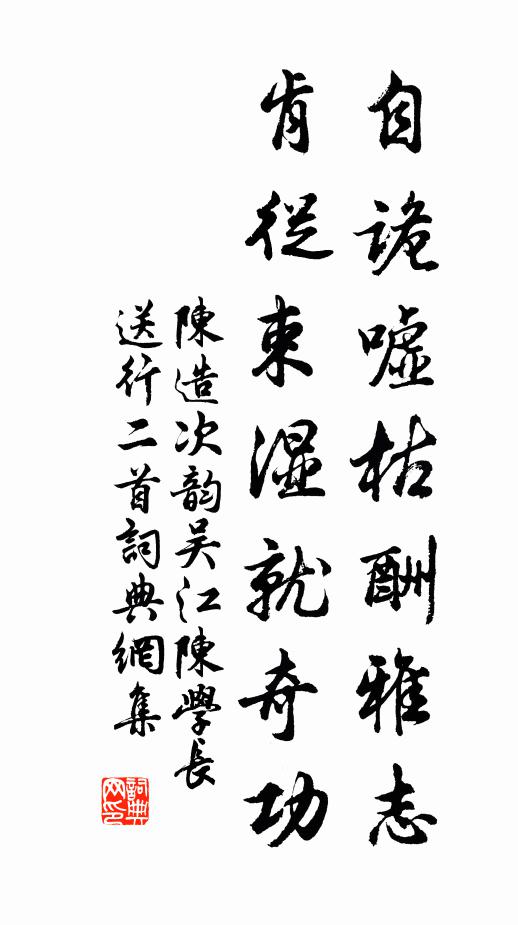 自詭噓枯酬雅志
肯從束濕就奇功
陳造次韵吴江陳學長
送行二首詞典網集
詞典
网印